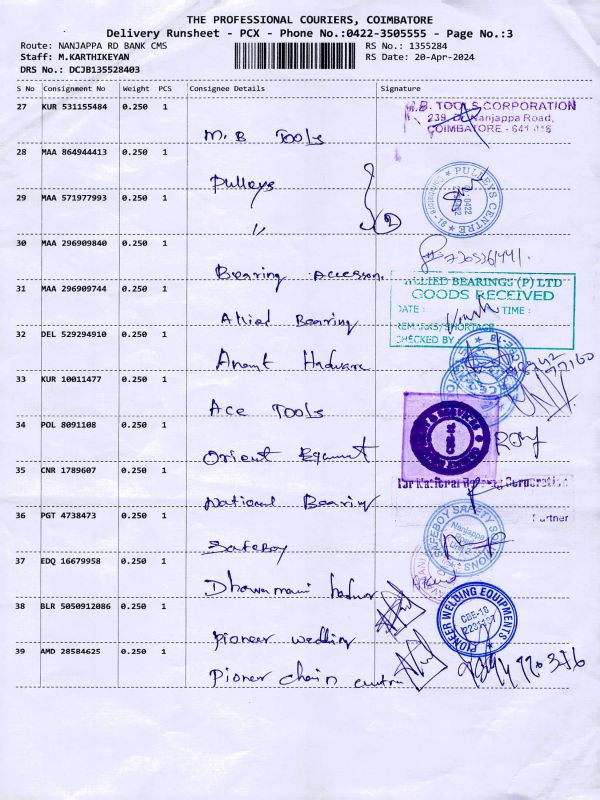 THE PROFESSIONAL COURIERS, COIMBATORE
Delivery Runsheet - PCX - Phone No.:0422-3505555 - Page No.:3
Route: NANJAPPA RD BANK CMS
RS No.: 1355284
Staff: M.KARTHIKEYAN
RS Date: 20-Apr-2024
DRS No.: DCJB135528403
S No Consignment No Weight PCS Consignee Details Signature
27 KUR 531155484 0.250 1
M.B Tools
M.B. TOOLS CORPORATION
239, Dr. Nanjappa Road,
COIMBATORE - 641 018
28 MAA 864944413 0.250 1
Pulleys
PULLEYS CENTRE
29 MAA 571977993 0.250 1
"
2
30 MAA 296909840 0.250 1
Bearing Accesson.
31 MAA 296909744 0.250 1
Allied Bearing
ALLIED BEARINGS (P) LTD
GOODS RECEIVED
DATE : TIME :
REMARKS/SHORTAGE
CHECKED BY :
32 DEL 529294910 0.250 1
Anant Hadware
33 KUR 10011477 0.250 1
Ace Tools
34 POL 8091108 0.250 1
Orient
35 CNR 1789607 0.250 1
National Bearing
For National Bearing Corporation
Partner
36 PGT 4738473 0.250 1
Safeboy
SAFEBOY SAFETY SOLUTIONS
Nanjappa
37 EDQ 16679958 0.250 1
38 BLR 5050912086 0.250 1
Pioneer wedding
PIONEER WELDING EQUIPMENTS
CBE-18
39 AMD 28584625 0.250 1
Pioner chain